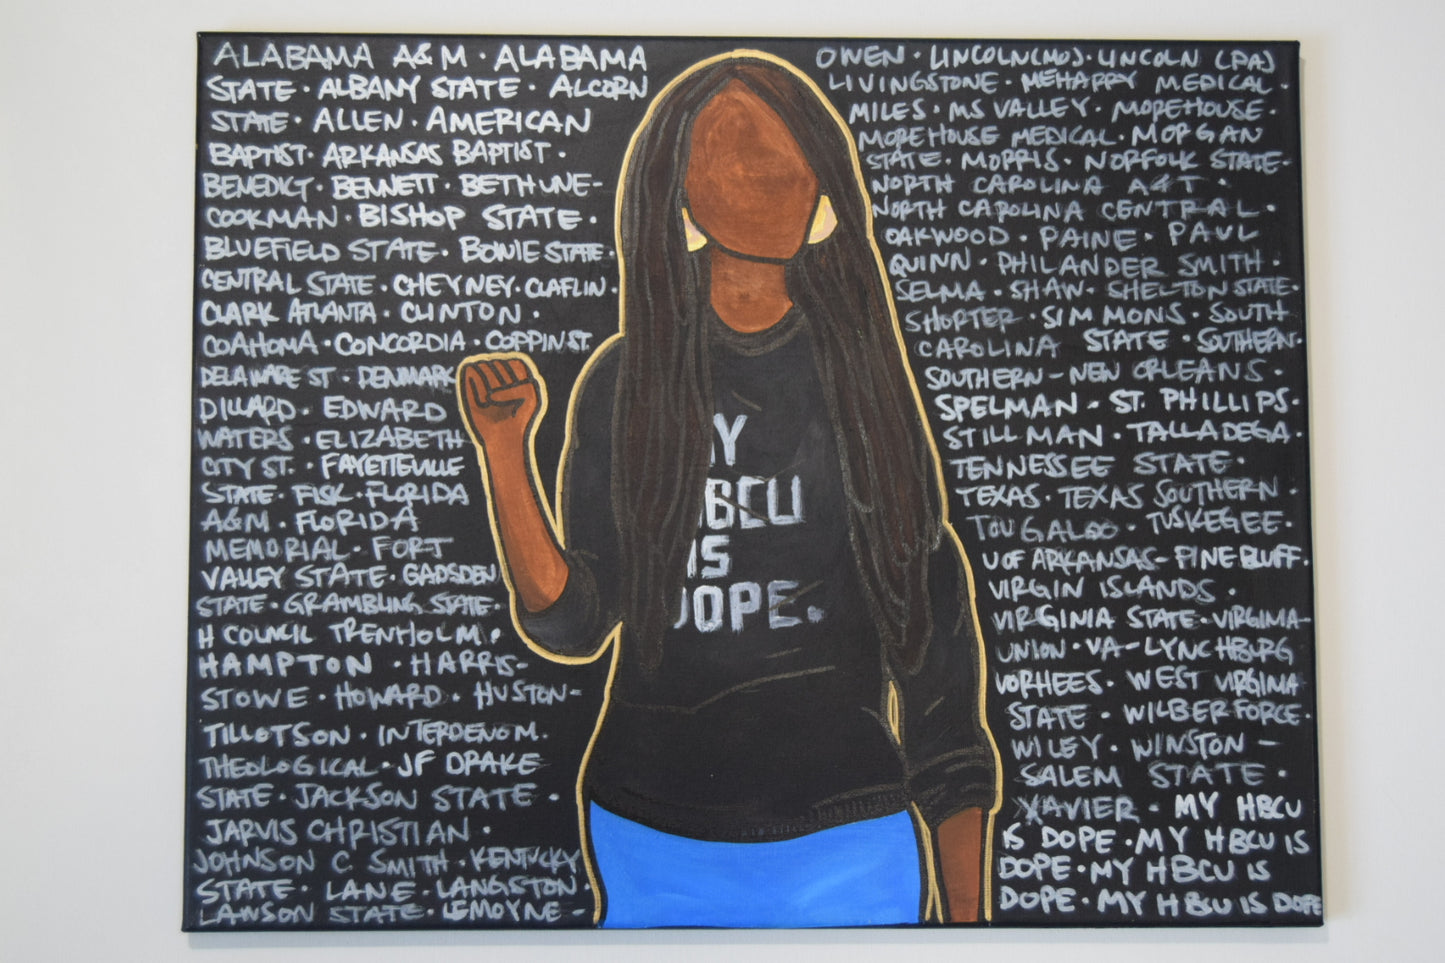 ALABAMA A&M · ALABAMA
STATE · ALBANY STATE · ALCORN
STATE · ALLEN · AMERICAN
BAPTIST · ARKANSAS BAPTIST ·
BENEDICT · BENNETT · BETHUNE-
COOKMAN · BISHOP STATE ·
BLUEFIELD STATE · BOWIE STATE ·
CENTRAL STATE · CHEYNEY · CLAFLIN ·
CLARK ATLANTA · CLINTON ·
COAHOMA · CONCORDIA · COPPIN ST.
DELAWARE ST · DENMARK
DILLARD · EDWARD
WATERS · ELIZABETH
CITY ST. · FAYETTEVILLE
STATE · FISK · FLORIDA
A&M · FLORIDA
MEMORIAL · FORT
VALLEY STATE · GADSDEN
STATE · GRAMBLING STATE ·
H COUNCIL TRENHOLM ·
HAMPTON · HARRIS-
STOWE · HOWARD · HUSTON-
TILLOTSON · INTERDENOM.
THEOLOGICAL · JF DRAKE
STATE · JACKSON STATE ·
JARVIS CHRISTIAN ·
JOHNSON C SMITH · KENTUCKY
STATE · LANE · LANGSTON ·
LAWSON STATE · LEMOYNE-
OWEN · LINCOLN (MO) · LINCOLN (PA)
LIVINGSTONE · MEHARRY MEDICAL ·
MILES · MS VALLEY · MOREHOUSE ·
MOREHOUSE MEDICAL · MORGAN
STATE · MORRIS · NORFOLK STATE ·
NORTH CAROLINA A&T ·
NORTH CAROLINA CENTRAL ·
OAKWOOD · PAINE · PAUL
QUINN · PHILANDER SMITH ·
SELMA · SHAW · SHELTON STATE ·
SHORTER · SIMMONS · SOUTH
CAROLINA STATE · SOUTHERN ·
SOUTHERN - NEW ORLEANS ·
SPELMAN · ST. PHILLIPS ·
STILLMAN · TALLADEGA ·
TENNESSEE STATE ·
TEXAS · TEXAS SOUTHERN ·
TOUGALOO · TUSKEGEE ·
U OF ARKANSAS - PINE BLUFF ·
VIRGIN ISLANDS ·
VIRGINIA STATE · VIRGINIA
UNION · VA-LYNCHBURG
VORHEES · WEST VIRGINIA
STATE · WILBERFORCE ·
WILEY · WINSTON -
SALEM STATE ·
XAVIER · MY HBCU
IS DOPE · MY HBCU IS
DOPE · MY HBCU IS
DOPE · MY HBCU IS DOPE
Y
BCU
IS
OPE.